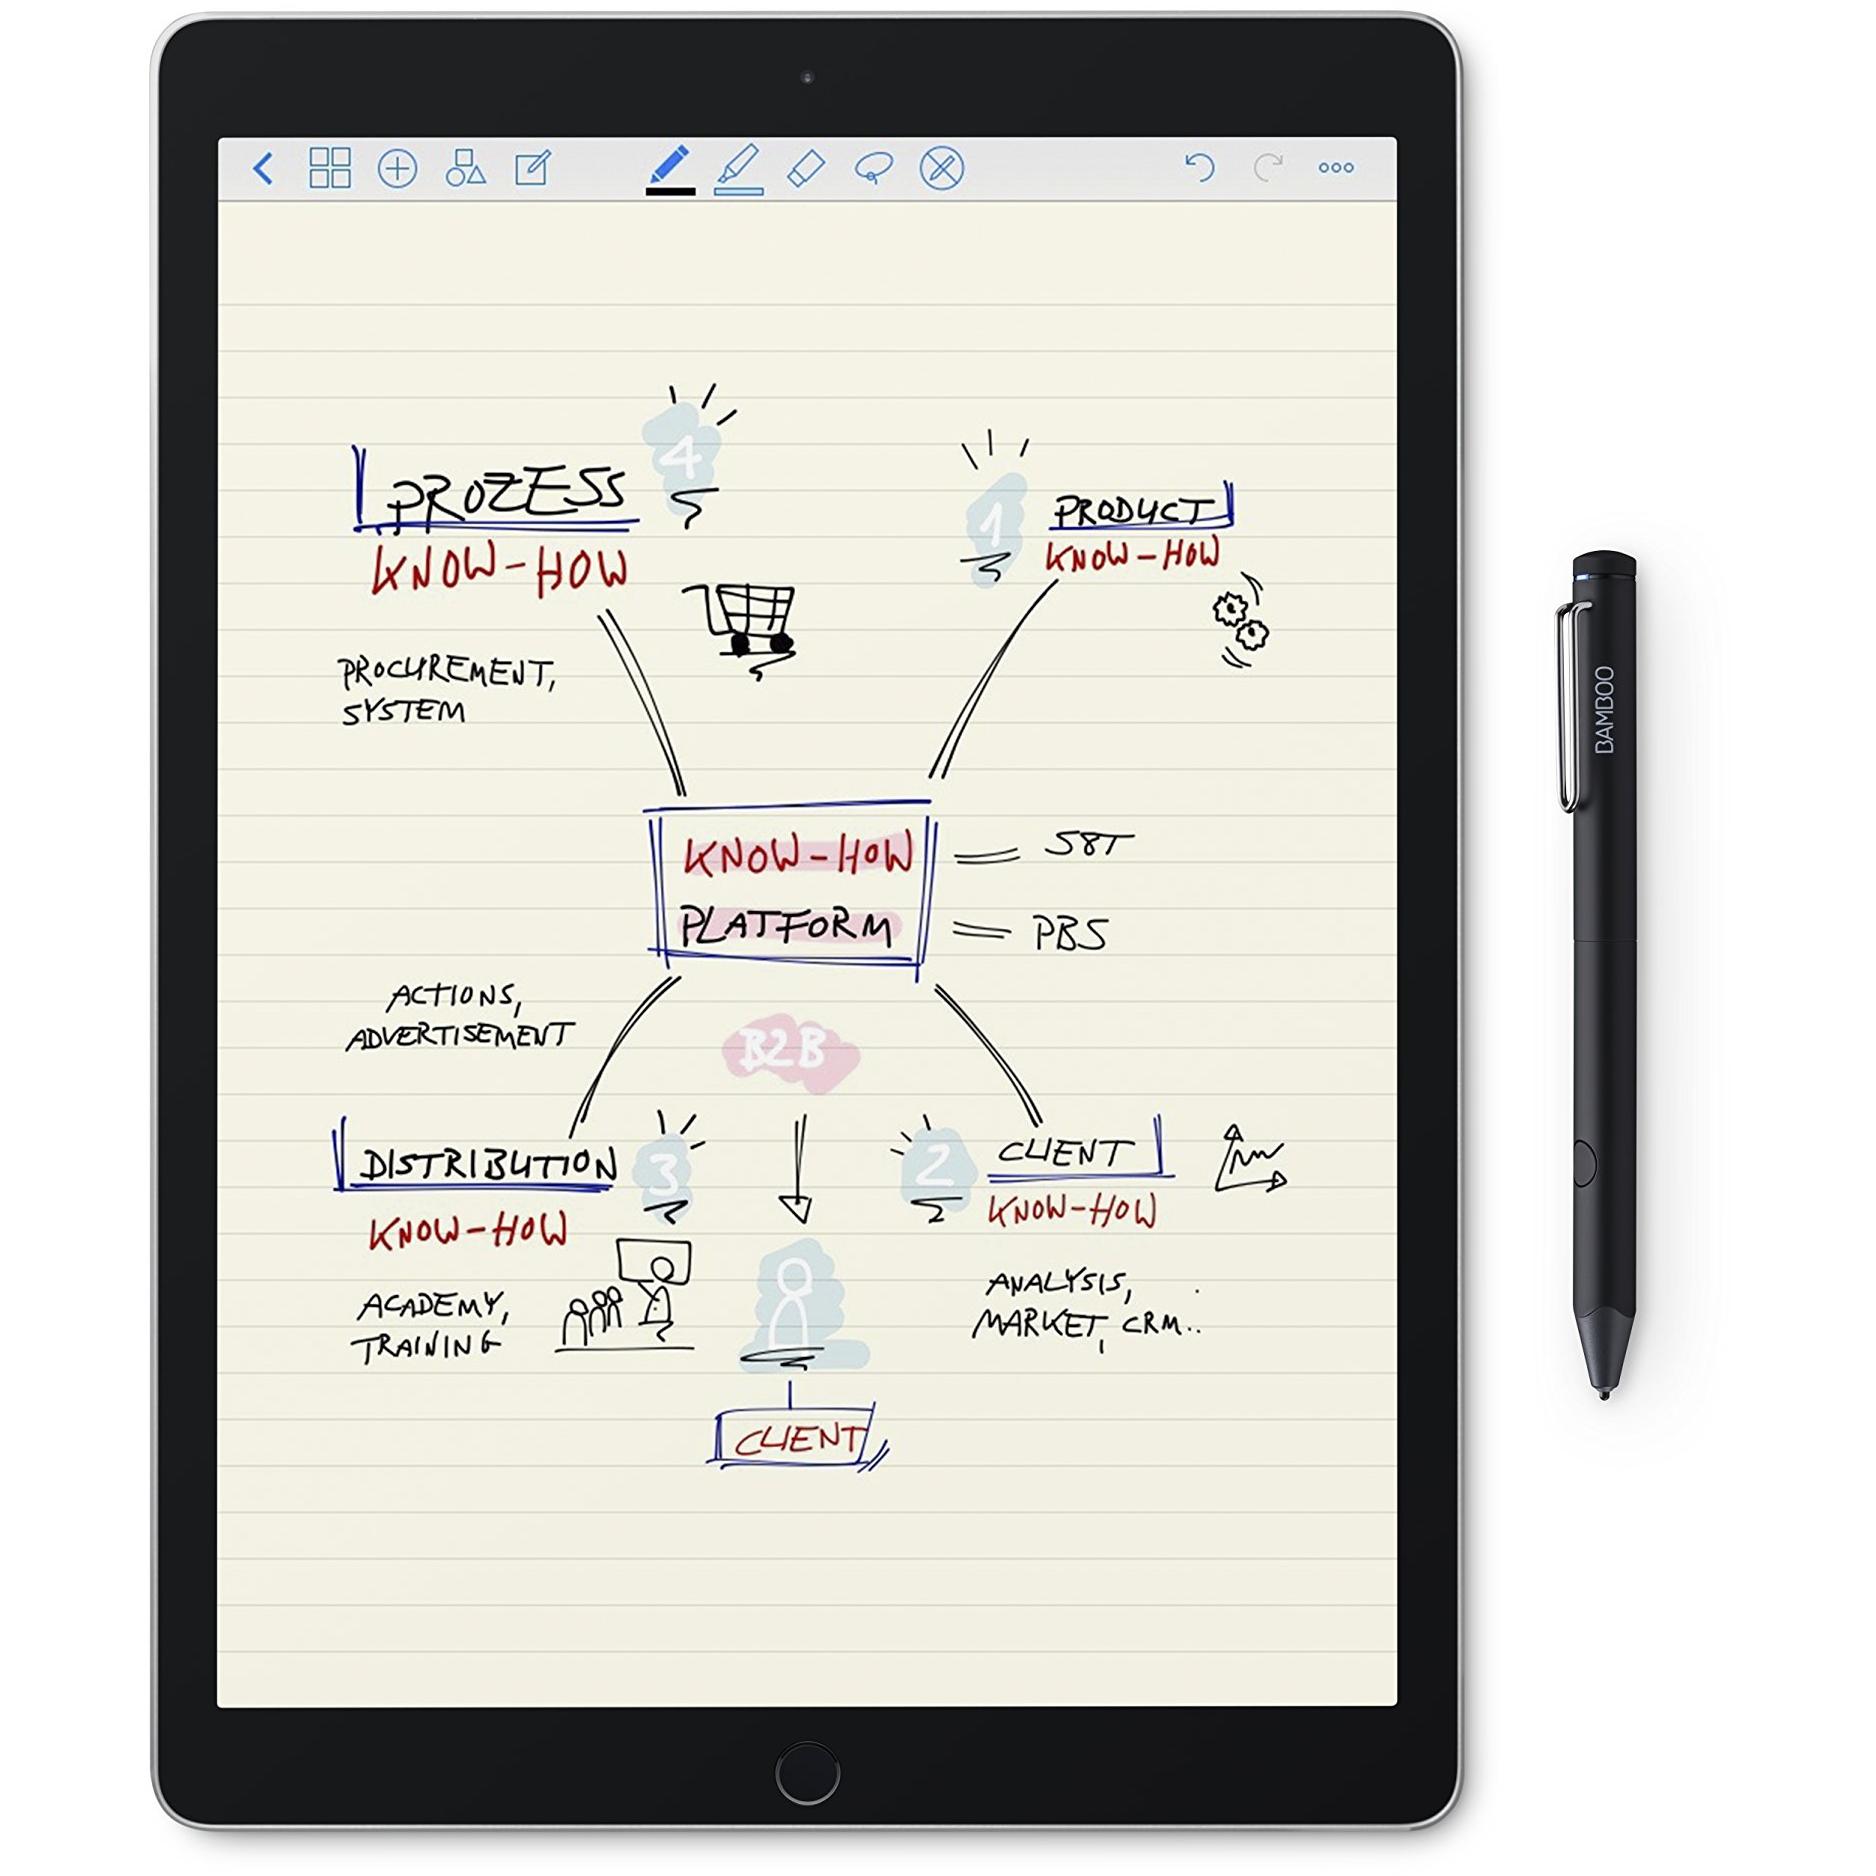 4
PROZESS
KNOW-HOW
PROCUREMENT,
SYSTEM
1
PRODUCT
KNOW-HOW
KNOW-HOW
PLATFORM
S8T
PBS
ACTIONS,
ADVERTISEMENT
B2B
DISTRIBUTION
3
KNOW-HOW
ACADEMY,
TRAINING
2
CLIENT
KNOW-HOW
ANALYSIS,
MARKET, CRM..
CLIENT
BAMBOO